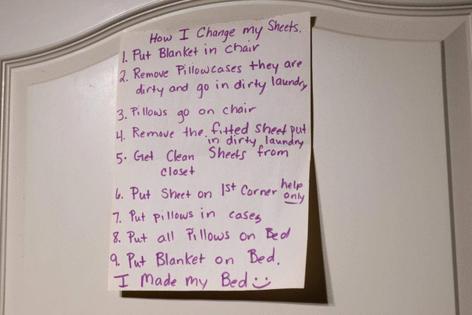 How I Change my Sheets.
1. Put Blanket in chair
2. Remove Pillowcases they are
dirty and go in dirty laundry
3. Pillows go on chair
4. Remove the fitted sheet put
in dirty laundry
5. Get Clean Sheets from
closet
6. Put Sheet on 1st Corner help
only
7. Put pillows in cases
8. Put all Pillows on Bed
9. Put Blanket on Bed.
I Made my Bed